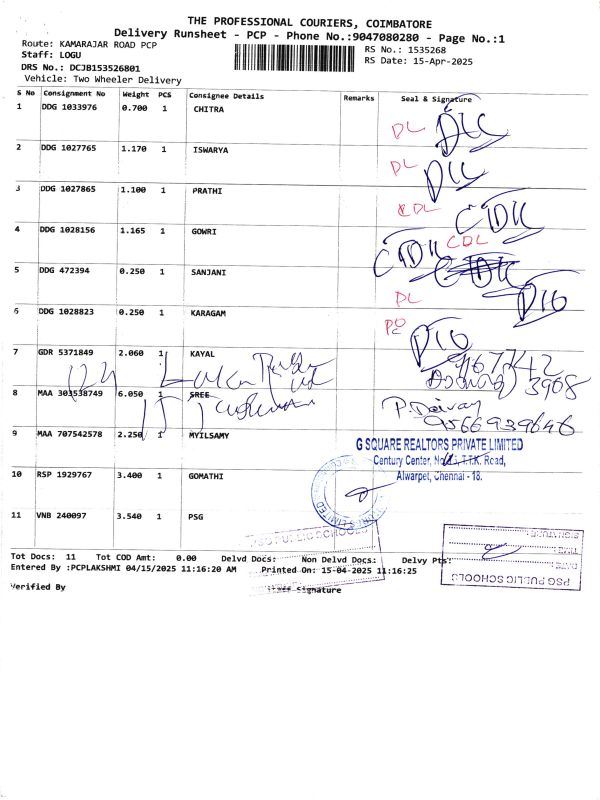 THE PROFESSIONAL COURIERS, COIMBATORE
Delivery Runsheet - PCP - Phone No.:9047080280 - Page No.:1
Route: KAMARAJAR ROAD PCP
Staff: LOGU
DRS No.: DCJB153526801
Vehicle: Two Wheeler Delivery
RS No.: 1535268
RS Date: 15-Apr-2025
S No Consignment No Weight PCS Consignee Details Remarks Seal & Signature
1 DDG 1033976 0.700 1 CHITRA
DL
2 DDG 1027765 1.170 1 ISWARYA
DL
3 DDG 1027865 1.100 1 PRATHI
CDL
4 DDG 1028156 1.165 1 GOWRI
CDL
5 DDG 472394 0.250 1 SANJANI
DL
6 DDG 1028823 0.250 1 KARAGAM
7 GDR 5371849 2.060 1 KAYAL
8 MAA 303538749 6.050 1 SREE
P. Deivay
9566939646
9 MAA 707542578 2.250 1 MYILSAMY
G SQUARE REALTORS PRIVATE LIMITED
Century Center, T.T.K. Road,
Alwarpet, Chennai - 18.
10 RSP 1929767 3.400 1 GOMATHI
11 VNB 240097 3.540 1 PSG
Tot Docs: 11 Tot COD Amt: 0.00 Delvd Docs: Non Delvd Docs: Delvy Pts:
Entered By :PCPLAKSHMI 04/15/2025 11:16:20 AM Printed On: 15-04-2025 11:16:25
PSG PUBLIC SCHOOLS
DATE:
TIME:
SIGNATURE:
Verified By Staff Signature